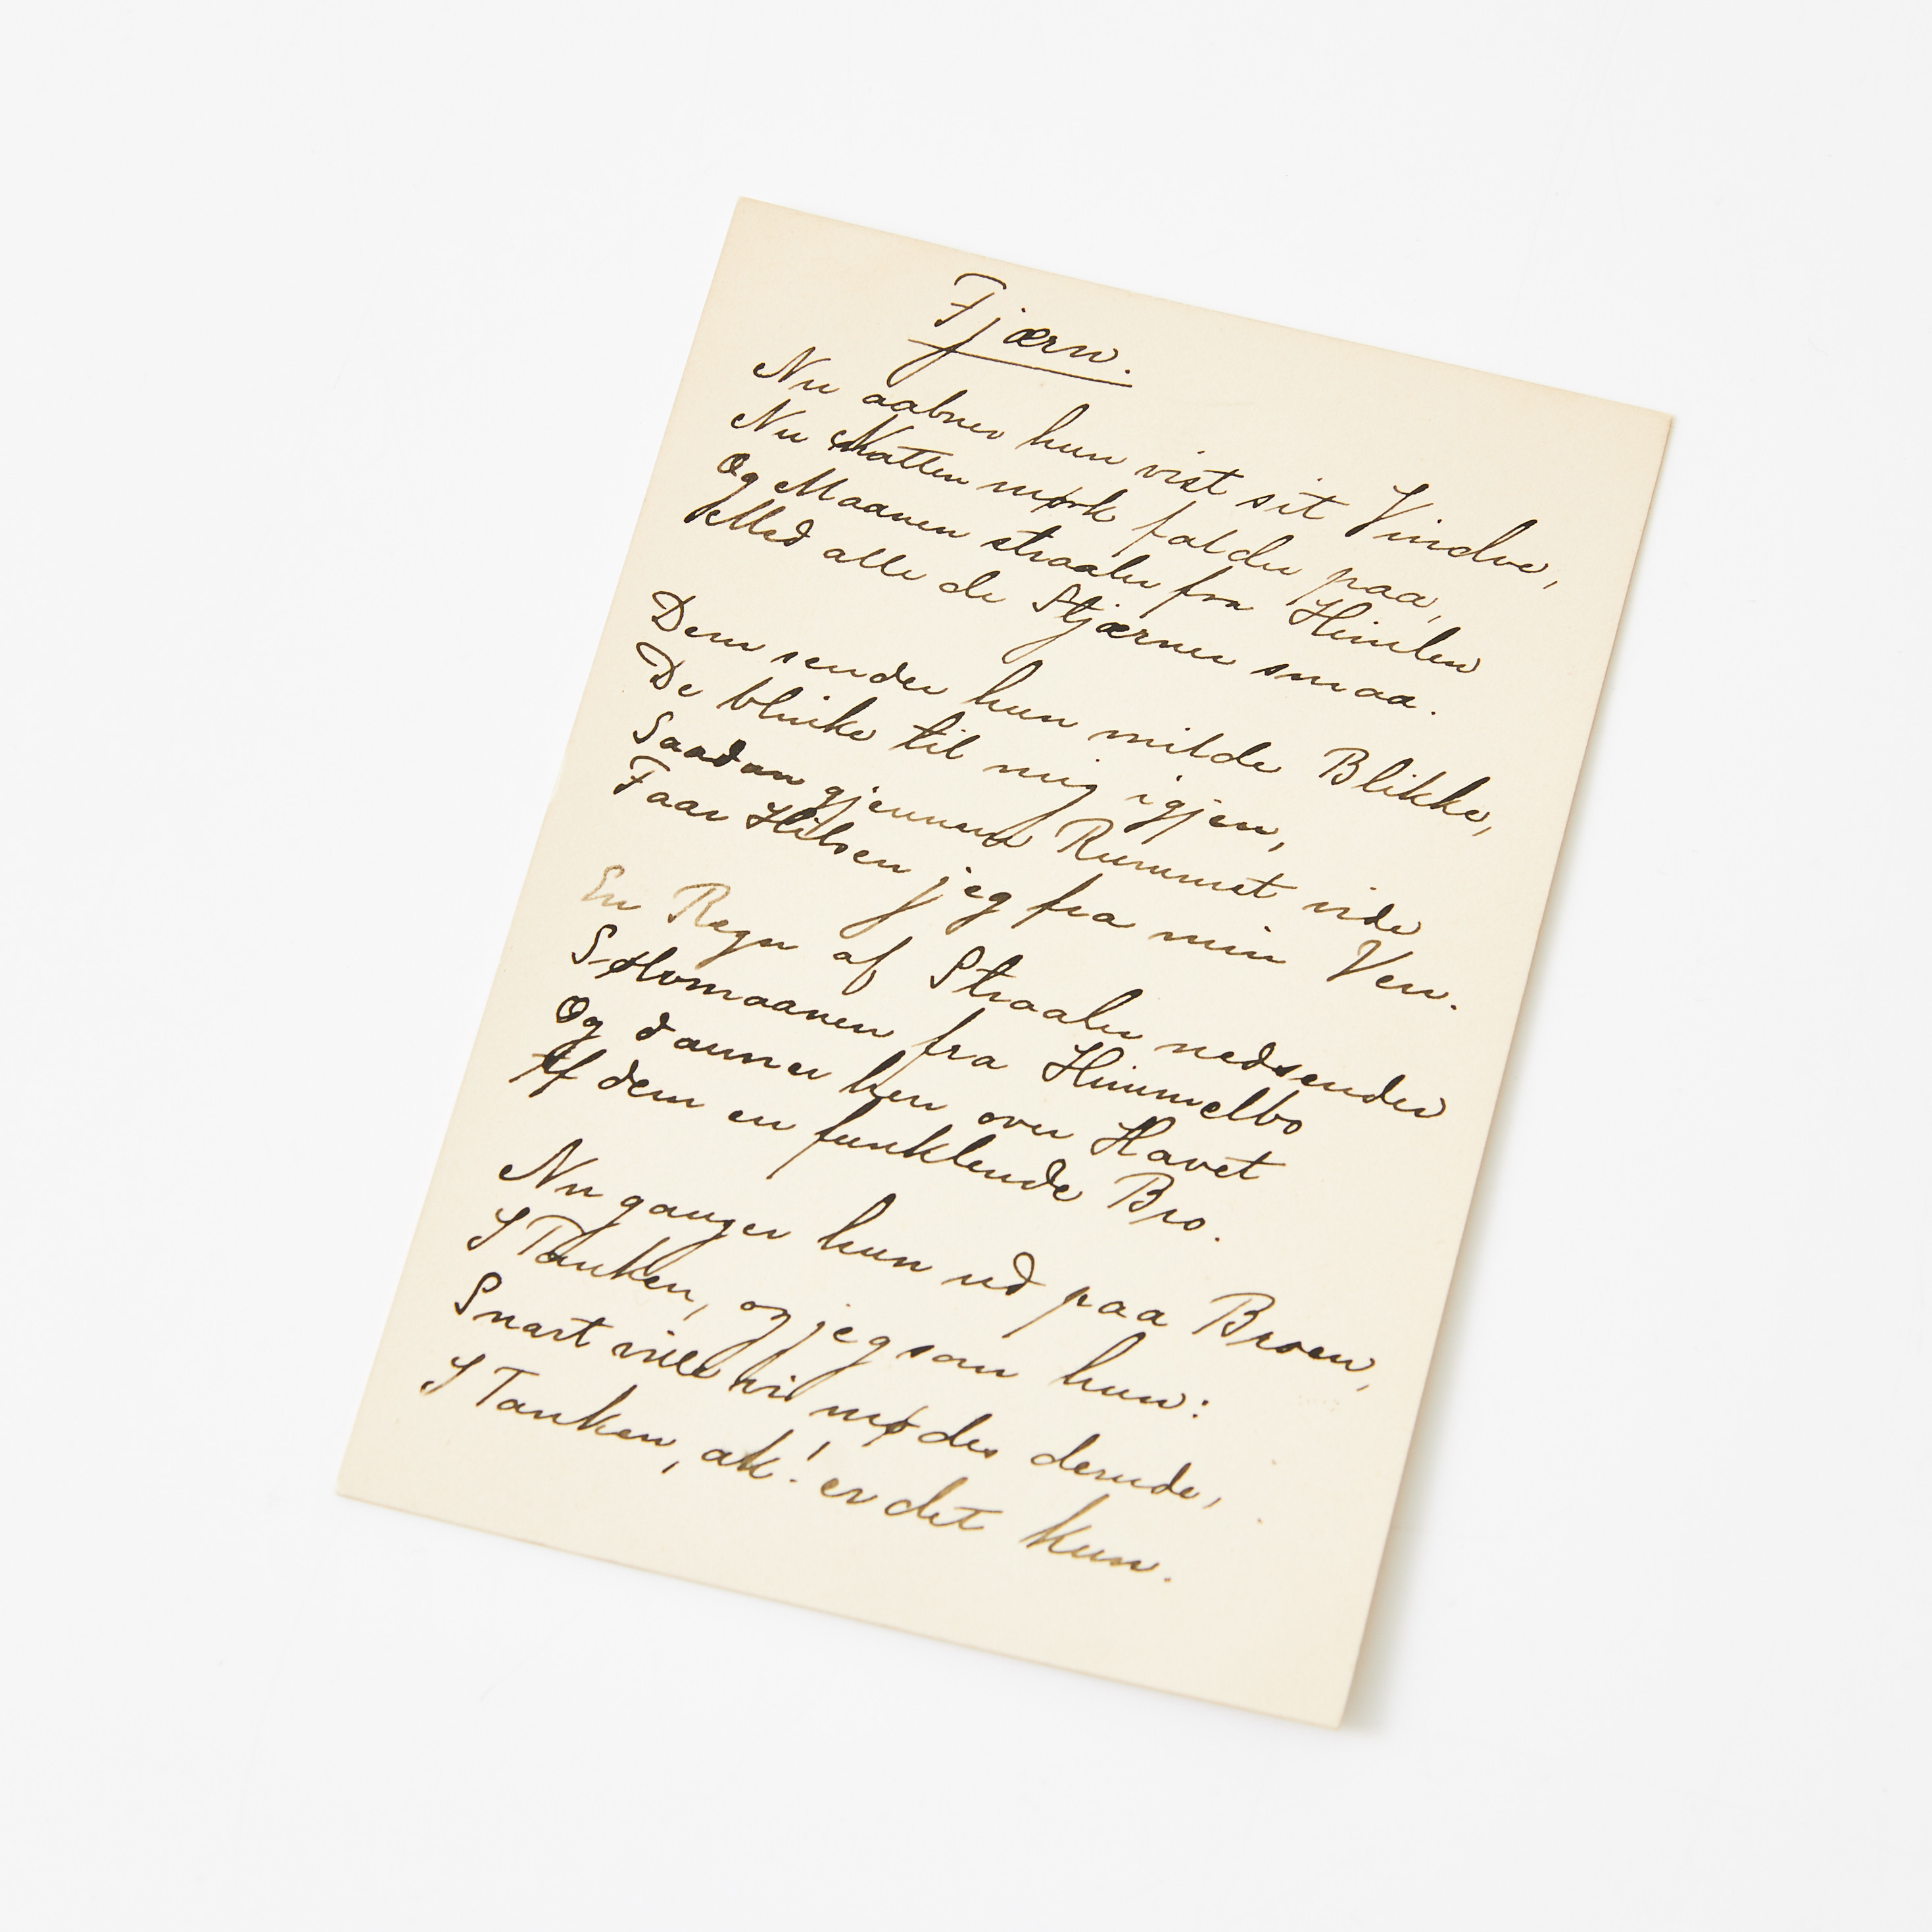 Fjærn.
Nu aabner hun vist sit Vindve,
Nu Natten mørk falder paa,
Og Maanen straaler fra Himlen
Med alle de Stjærner smaa.
Dem sender hun milde Blikke,
De blinke til mig igjen,
Saadan gjennem Rummet vide
Faar Hilsen jeg fra min Ven.
En Regn af Straaler nedsender
Sølvmaanen fra Himmelbo
Og danner hen over Havet
Af dem en funklende Bro.
Nu ganger hun ud paa Broen,
I Tanken, og jeg som hun:
Snart ville vi mødes derude,
I Tanken, ak! er det kun.